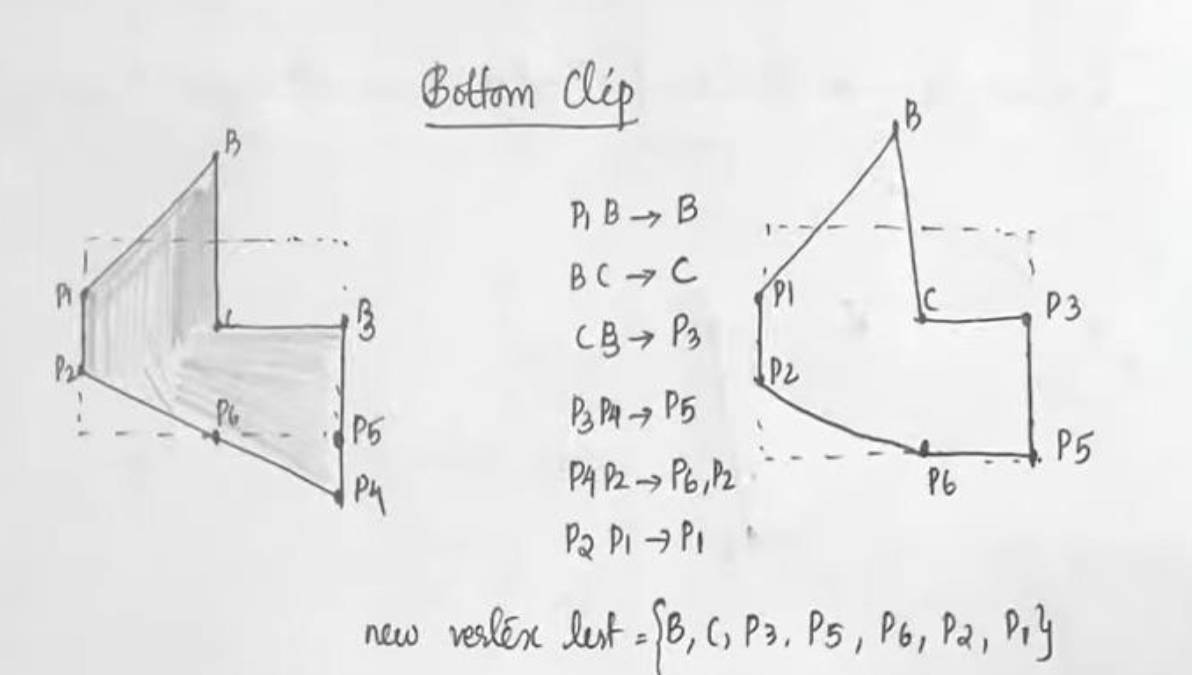 Bottom Clip
B
P1
C
P3
P2
P6
P5
P4
P1 B → B
B C → C
C P3 → P3
P3 P4 → P5
P4 P2 → P6, P2
P2 P1 → P1
B
P1
C
P3
P2
P5
P6
new vertex list = {B, C, P3. P5, P6, P2, P1}